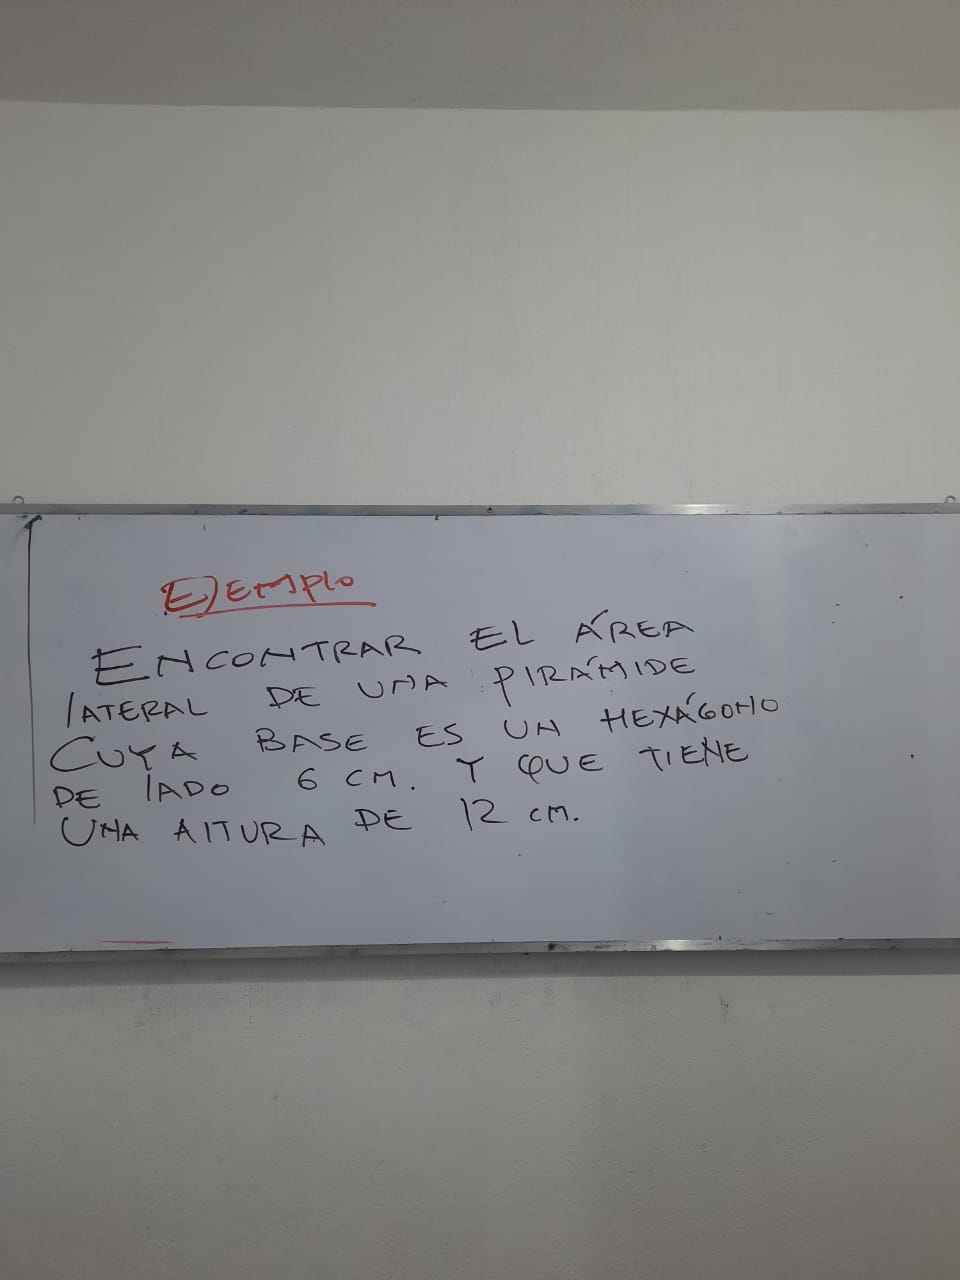 EJEMPLO
ENCONTRAR EL ÁREA
LATERAL DE UNA PIRÁMIDE
CUYA BASE ES UN HEXÁGONO
DE LADO 6 CM. Y QUE TIENE
UNA ALTURA DE 12 CM.